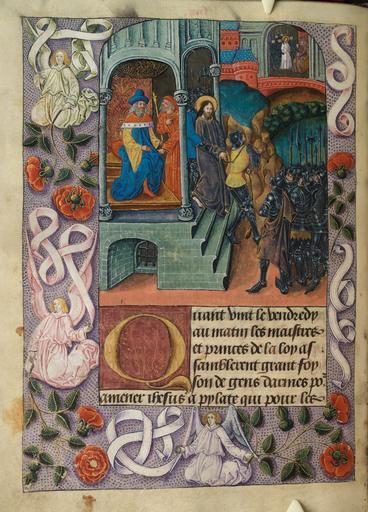 Quant vint le vendredy
au matin les maistres
et princes de la loy as
samblerent grant foy
son de gens darmes po᷑
amener ihesus a pylate qui pour les